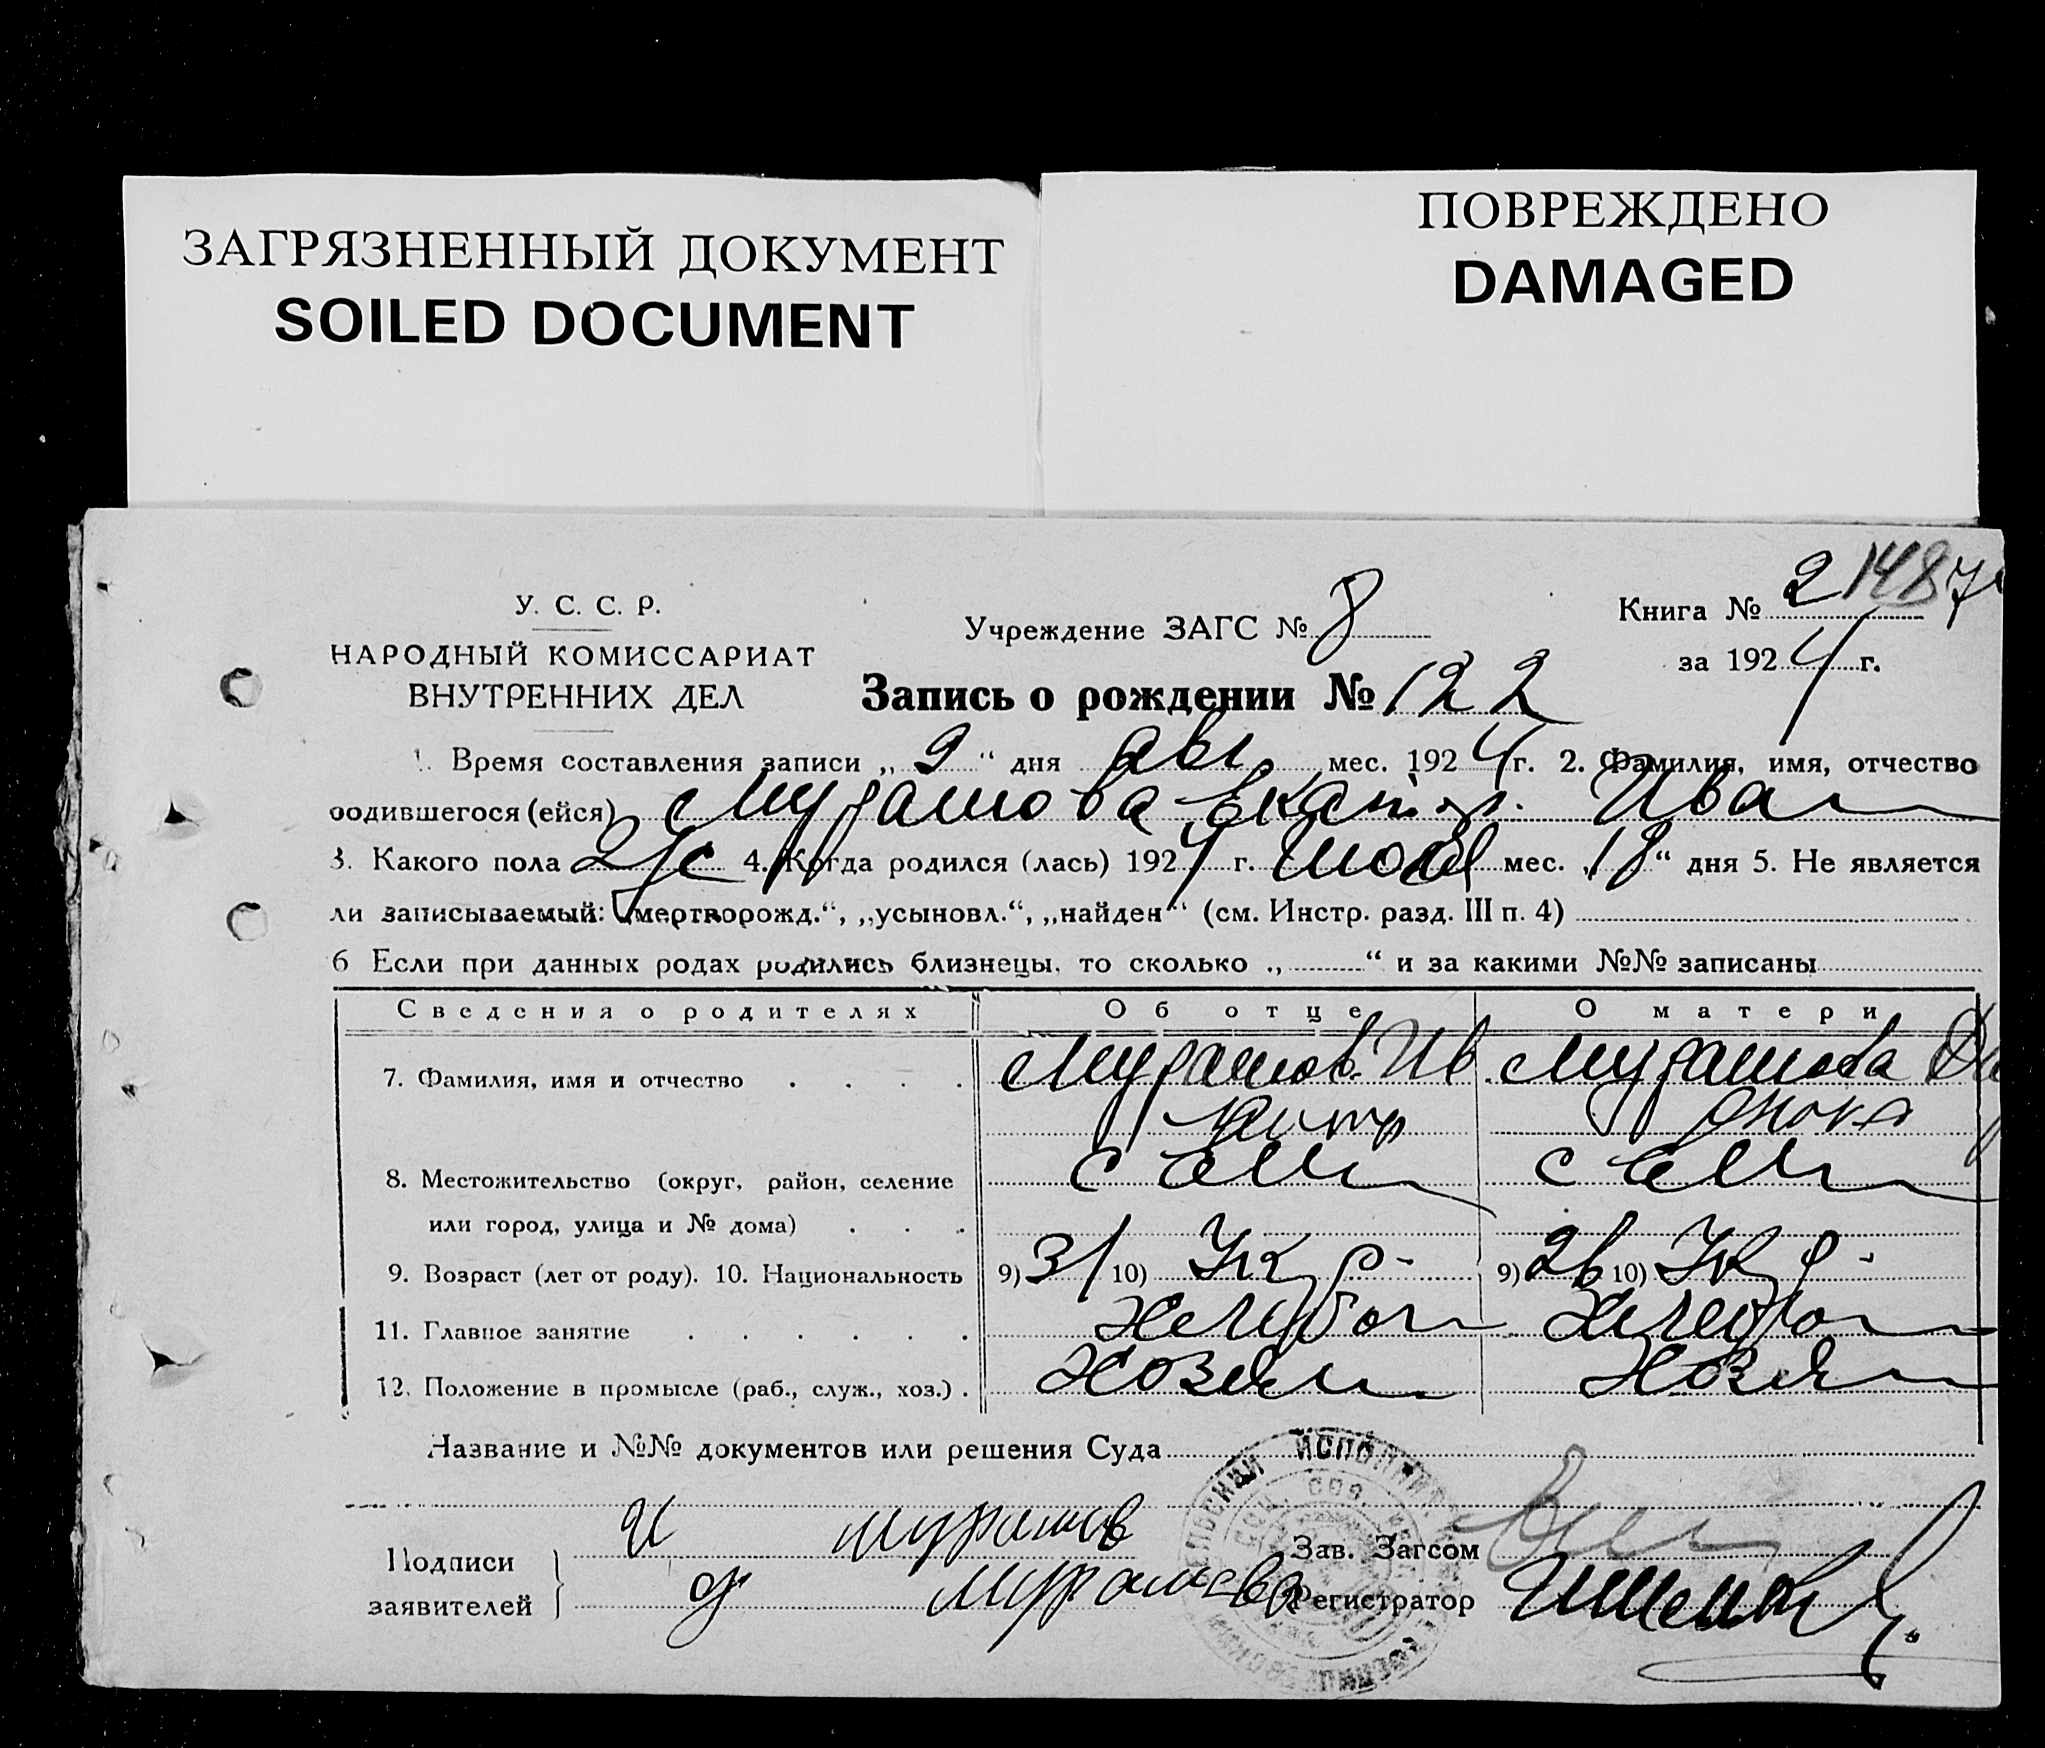 ЗАГРЯЗНЕННЫЙ ДОКУМЕНТ
SOILED DOCUMENT
ПОВРЕЖДЕНО
DAMAGED
У. С. С. Р.
НАРОДНЫЙ КОМИССАРИАТ
ВНУТРЕННИХ ДЕЛ
Учреждение ЗАГС № 8
Книга № 2 148
за 1924 г.
Запись о рождении № 122
1. Время составления записи „ 9 “ дня авг. мес. 1924 г. 2. Фамилия, имя, отчество
родившегося (ейся) Мурашова Екат. Ива
3. Какого пола 4. Когда родился (лась) 1924 г. мес. „18“ дня 5. Не является
ли записываемый: „мертворожд.“, „усыновл.“, „найден“ (см. Инстр. разд. III п. 4)
6 Если при данных родах родились близнецы, то сколько „ “ и за какими №№ записаны
Сведения о родителях Об отце О матери
7. Фамилия, имя и отчество . . . . Мурашов Ив Мурашова
8. Местожительство (округ, район, селение
или город, улица и № дома) . . .
9. Возраст (лет от роду). 10. Национальность 9) 31 10) Укр- 9) 26 10) Укр-
11. Главное занятие . . . . . . Хлебоп Хлебоп
12. Положение в промысле (раб., служ., хоз.) . Хозяин Хозяи
Название и №№ документов или решения Суда
Подписи
заявителей
И Мурашов
Мурашева
Зав. Загсом
Регистратор